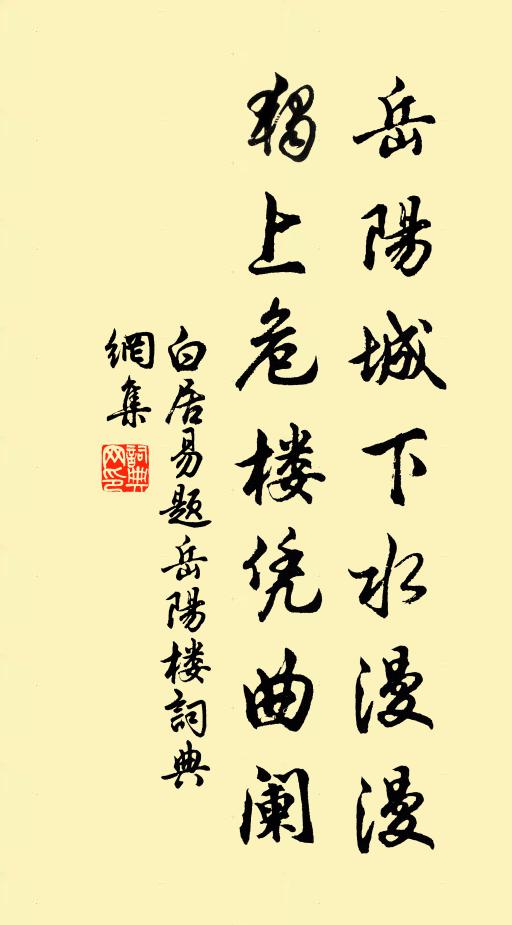 岳陽城下水漫漫
獨上危楼凭曲阑
白居易题岳陽楼詞典
網集
詞典网印